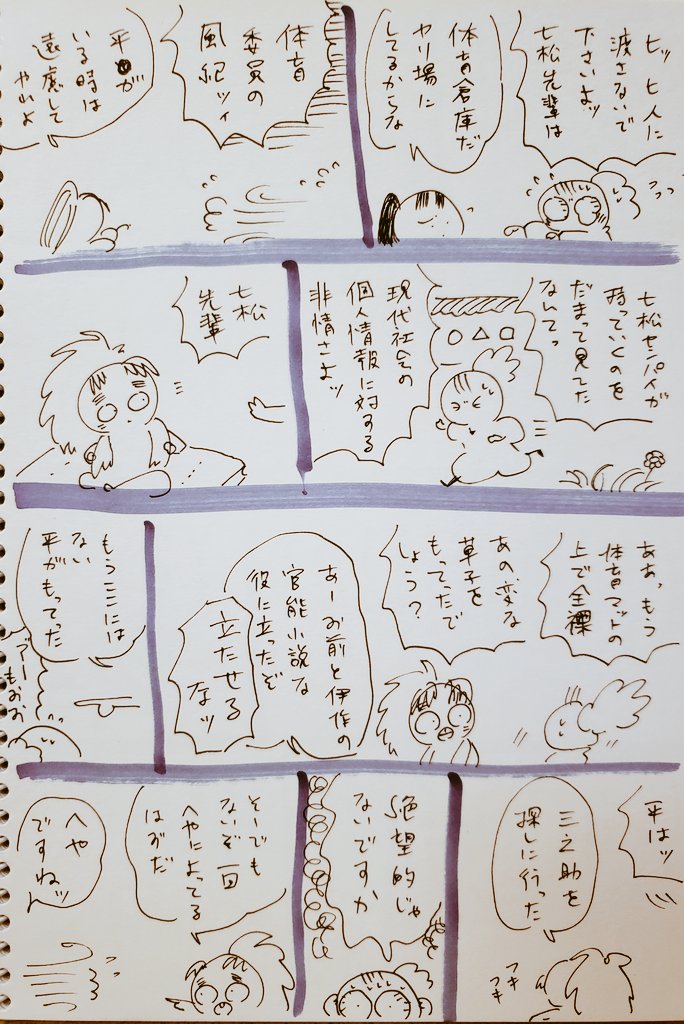 ヒッ ヒ人に
渡さないで
下さいよッ
七松先輩は
体育倉庫だ
ヤリ場に
してるからな
体育
委員の
風紀ッィ
平が
いる時は
遠慮して
やれよ
七松センパイが
持っていくのを
だまって見てた
なんてっ
現代社会の
個人情報に対する
非情さよッ
七松
先輩
ああっもう
体育マットの
上で全裸
あの変な
草子を
もってったで
しょう?
あーお前と伊作の
官能小説な
役に立ったぞ
立たせる
なッ
もうここには
ない
平がもってった
アー
もおお
平はッ
三之助を
探しに行った
フキ
フキ
絶望的じゃ
ないですか
そーでも
ないぞ一回
へやによってる
はずだ
へや
ですねッ